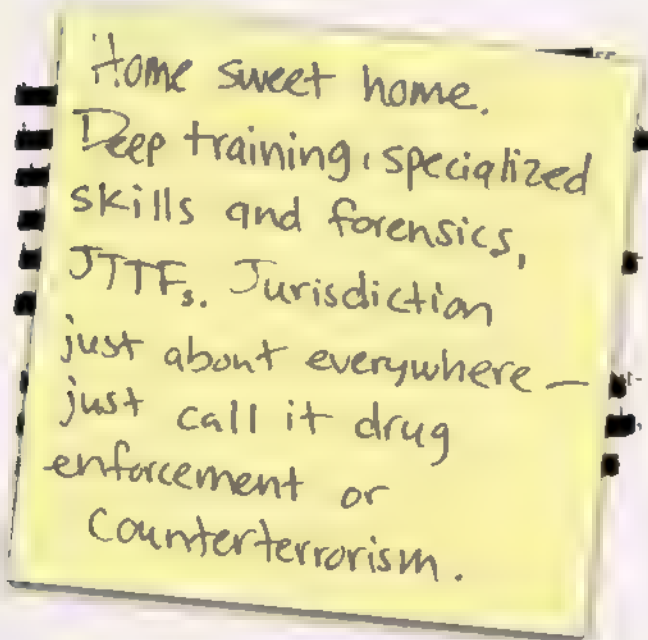 Home sweet home.
Deep training, specialized
skills and forensics,
JTTFs. Jurisdiction
just about everywhere —
just call it drug
enforcement or
Counterterrorism.